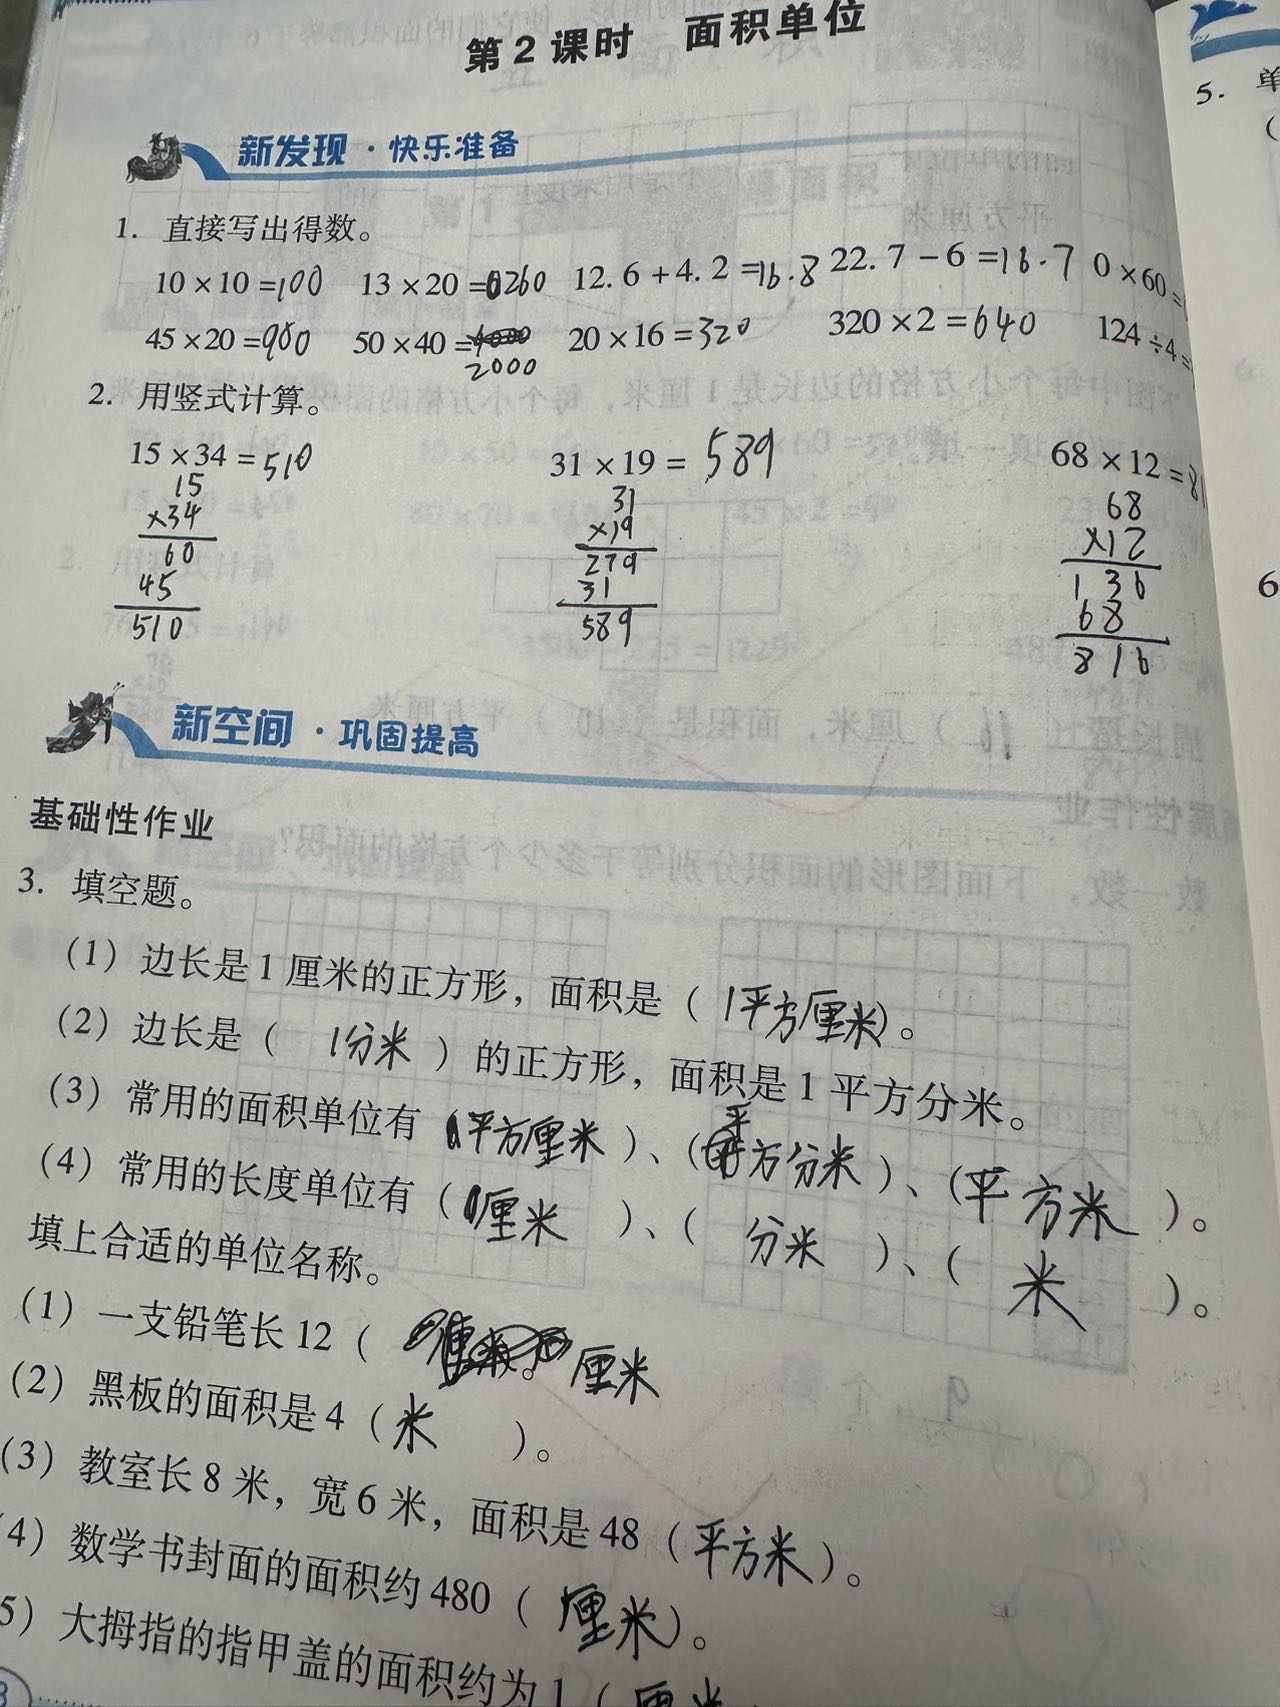 第2课时 面积单位
新发现·快乐准备
1. 直接写出得数。
10×10=100 13×20=0260 12.6+4.2=16.8 22.7-6=16.7 0×60=
45×20=900 50×40= 2000 20×16=320 320×2=640 124÷4=
2. 用竖式计算。
15×34=510 31×19=589 68×12=81
15 31 68
×34 ×19 ×12
60 279 136
45 31 68
510 589 816
新空间·巩固提高
基础性作业
3. 填空题。
(1) 边长是1厘米的正方形，面积是(1平方厘米)。
(2) 边长是(1分米)的正方形，面积是1平方分米。
(3) 常用的面积单位有(平方厘米)、(平方分米)、(平方米)。
(4) 常用的长度单位有(厘米)、(分米)、(米)。
填上合适的单位名称。
(1) 一支铅笔长12( 厘米
(2) 黑板的面积是4(米)。
(3) 教室长8米，宽6米，面积是48(平方米)。
4) 数学书封面的面积约480(厘米)。
5) 大拇指的指甲盖的面积约为1(厘米
5. 单
(
6